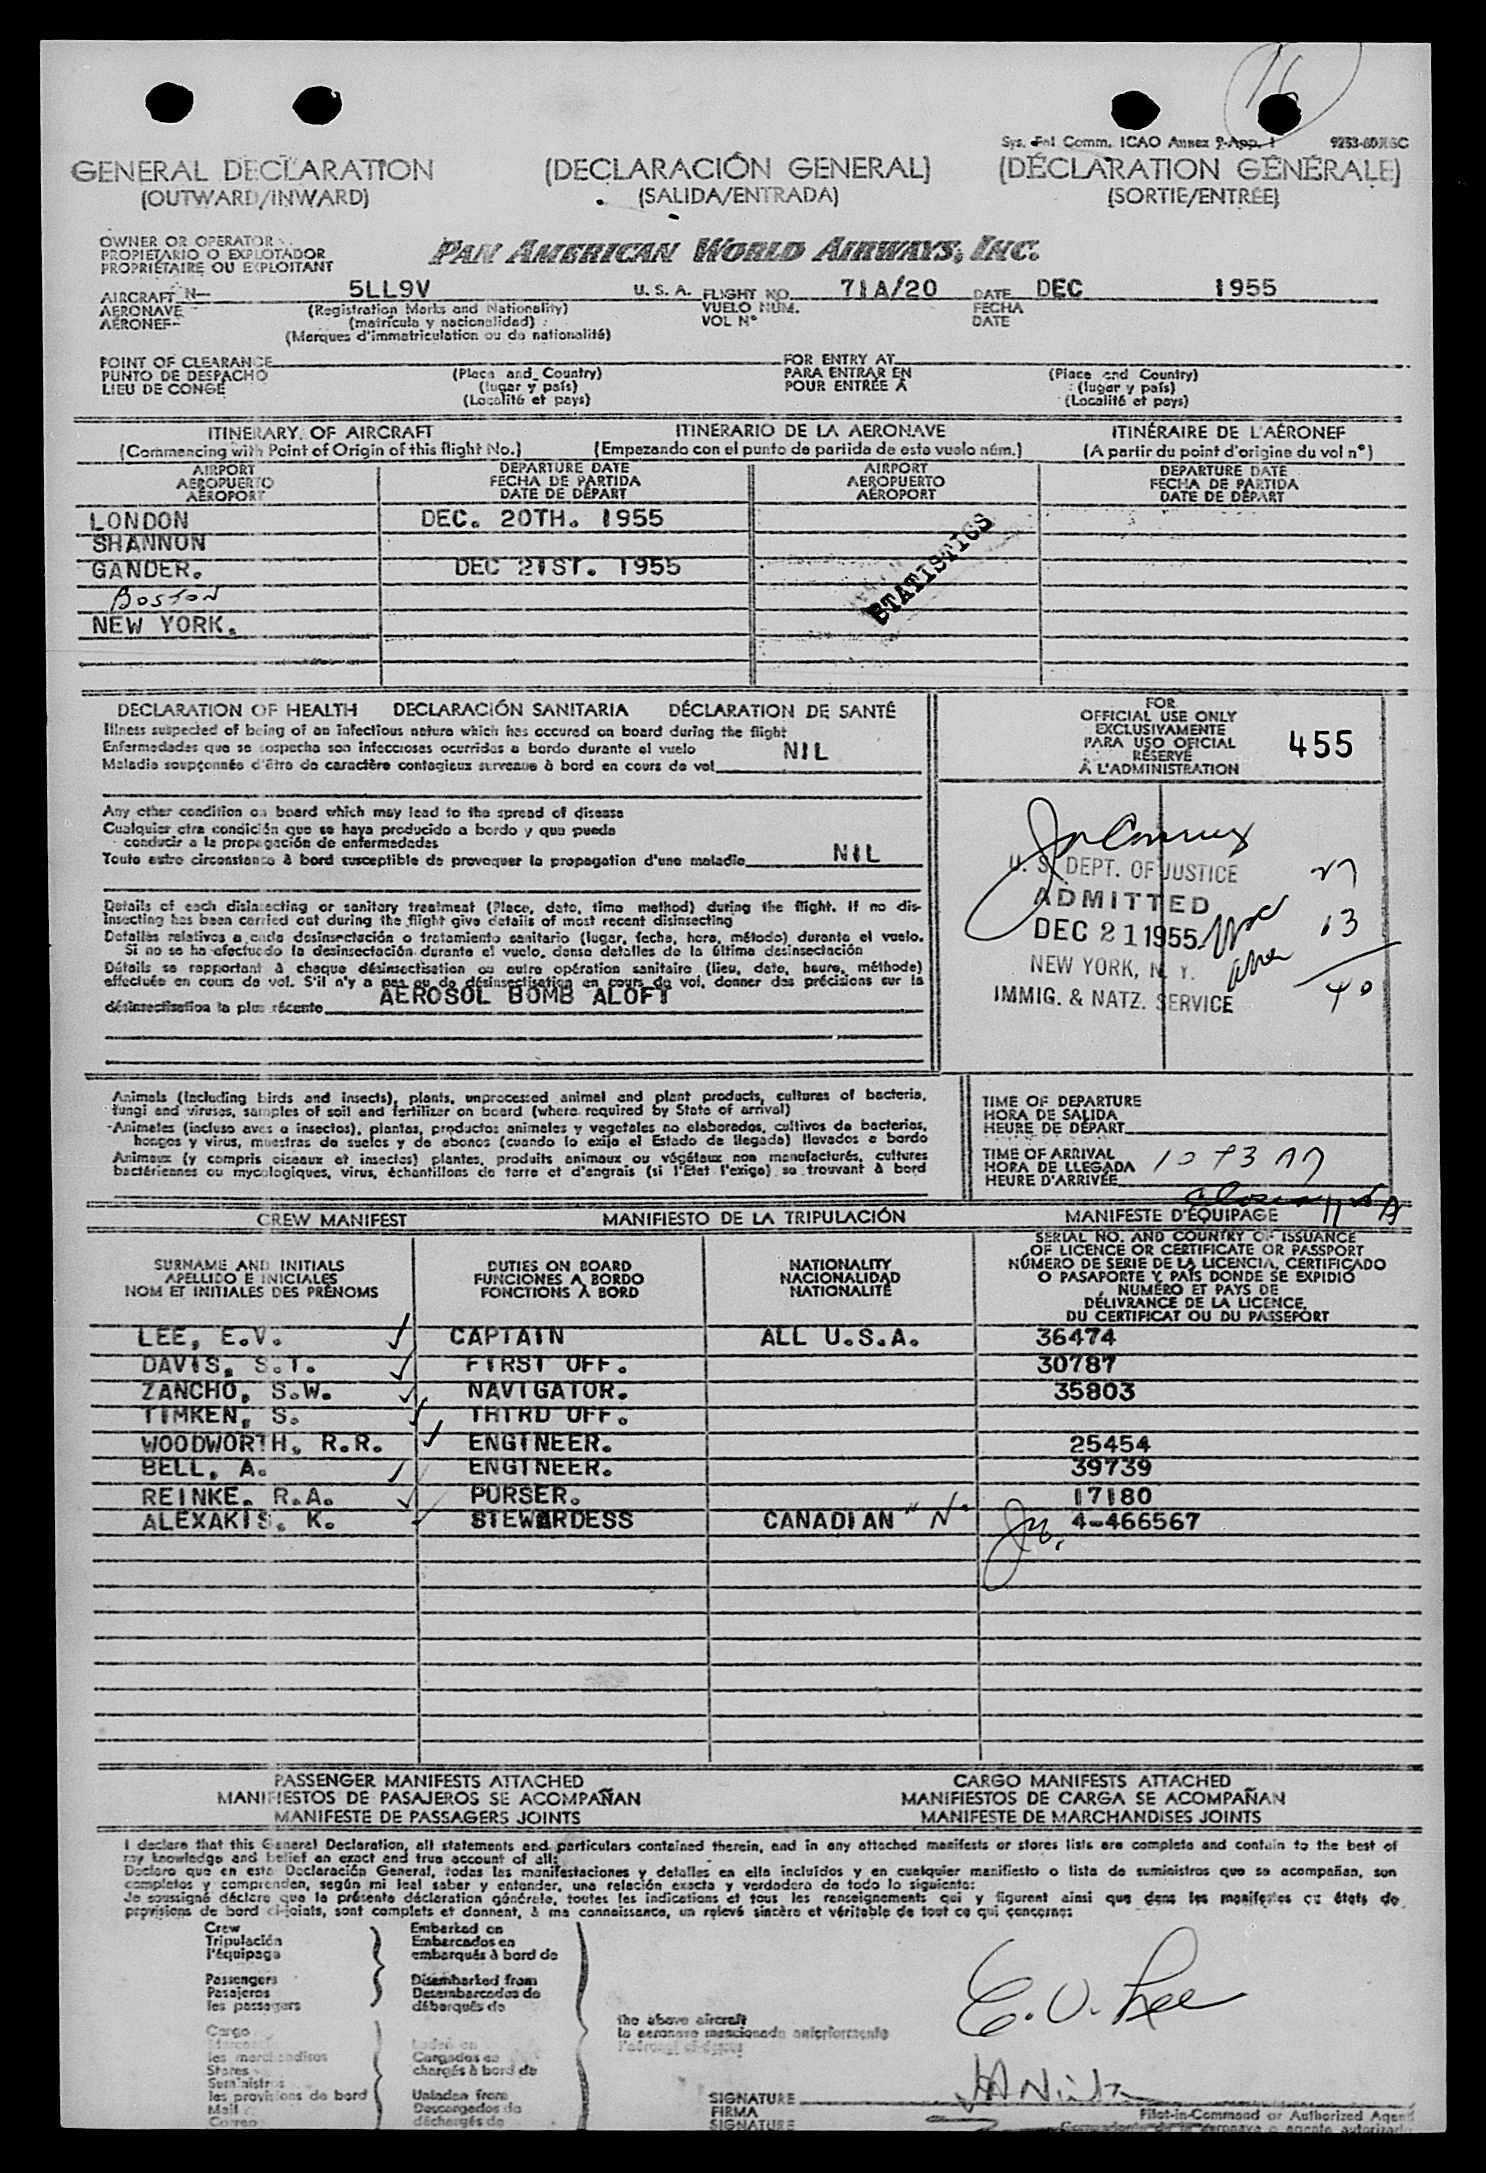 16
Sys. Fnl Comm. ICAO Annex 9-App. 1
GENERAL DECLARATION (DECLARACIÓN GENERAL) (DÉCLARATION GÉNÉRALE)
(OUTWARD/INWARD) (SALIDA/ENTRADA) (SORTIE/ENTRÉE)
OWNER OR OPERATOR
PROPIETARIO O EXPLOTADOR
PROPRIÉTAIRE OU EXPLOITANT
PAN AMERICAN WORLD AIRWAYS, INC.
AIRCRAFT N- 5LL9V U.S.A. FLIGHT NO. 71A/20 DATE DEC 1955
AERONAVE (Registration Marks and Nationality) VUELO NUM. FECHA
AÉRONEF (matrícula y nacionalidad) VOL Nº DATE
(Marques d'immatriculation ou de nationalité)
POINT OF CLEARANCE FOR ENTRY AT
PUNTO DE DESPACHO (Place and Country) PARA ENTRAR EN (Place and Country)
LIEU DE CONGÉ (lugar y país) POUR ENTRÉE À (lugar y país)
(Localité et pays) (Localité et pays)
ITINERARY OF AIRCRAFT ITINERARIO DE LA AERONAVE ITINÉRAIRE DE L'AÉRONEF
(Commencing with Point of Origin of this flight No.) (Empezando con el punto de partida de este vuelo núm.) (A partir du point d'origine du vol nº)
AIRPORT DEPARTURE DATE AIRPORT DEPARTURE DATE
AEROPUERTO FECHA DE PARTIDA AEROPUERTO FECHA DE PARTIDA
AÉROPORT DATE DE DÉPART AÉROPORT DATE DE DÉPART
LONDON DEC. 20TH. 1955
SHANNON
GANDER. DEC 21ST. 1955
BOSTON
NEW YORK.
STATISTICS
DECLARATION OF HEALTH DECLARACIÓN SANITARIA DÉCLARATION DE SANTÉ
Illness suspected of being of an infectious nature which has occured on board during the flight
Enfermedades que se sospecha son infecciosas ocurridas a bordo durante el vuelo NIL
Maladie soupçonnée d'être de caractère contagieux survenue à bord en cours de vol
Any other condition on board which may lead to the spread of disease
Cualquier otra condición que se haya producido a bordo y que pueda
conducir a la propagación de enfermedades
Toute autre circonstance à bord susceptible de provoquer la propagation d'une maladie NIL
Details of each disinsecting or sanitary treatment (Place, date, time method) during the flight. If no dis-
insecting has been carried out during the flight give details of most recent disinsecting
Detalles relativos a cada desinsectación o tratamiento sanitario (lugar, fecha, hora, método) durante el vuelo.
Si no se ha efectuado la desinsectación durante el vuelo, dense detalles de la última desinsectación
Détails se rapportant à chaque désinsectisation ou autre opération sanitaire (lieu, date, heure, méthode)
effectuée en cours de vol. S'il n'y a pas eu de désinsectisation en cours de vol, donner des précisions sur la
désinsectisation la plus récente AEROSOL BOMB ALOFT
FOR
OFFICIAL USE ONLY
EXCLUSIVAMENTE
PARA USO OFICIAL
RÉSERVÉ
À L'ADMINISTRATION
455
U. S. DEPT. OF JUSTICE
ADMITTED
DEC 21 1955
NEW YORK, N. Y.
IMMIG. & NATZ. SERVICE
27
13
40
Animals (including birds and insects), plants, unprocessed animal and plant products, cultures of bacteria,
fungi and viruses, samples of soil and fertilizer on board (where required by State of arrival)
Animales (incluso aves o insectos), plantas, productos animales y vegetales no elaborados, cultivos de bacterias,
hongos y virus, muestras de suelos y de abonos (cuando lo exija el Estado de llegada) llevados a bordo
Animaux (y compris oiseaux et insectes) plantes, produits animaux ou végétaux non manufacturés, cultures
bactériennes ou mycologiques, virus, échantillons de terre et d'engrais (si l'État l'exige) se trouvant à bord
TIME OF DEPARTURE
HORA DE SALIDA
HEURE DE DÉPART
TIME OF ARRIVAL
HORA DE LLEGADA
HEURE D'ARRIVÉE
CREW MANIFEST MANIFIESTO DE LA TRIPULACIÓN MANIFESTE D'ÉQUIPAGE
SURNAME AND INITIALS
APELLIDO E INICIALES
NOM ET INITIALES DES PRÉNOMS
DUTIES ON BOARD
FUNCIONES A BORDO
FONCTIONS À BORD
NATIONALITY
NACIONALIDAD
NATIONALITÉ
SERIAL NO. AND COUNTRY OF ISSUANCE
OF LICENCE OR CERTIFICATE OR PASSPORT
NÚMERO DE SERIE DE LA LICENCIA, CERTIFICADO
O PASAPORTE Y PAÍS DONDE SE EXPIDIÓ
NUMÉRO ET PAYS DE
DÉLIVRANCE DE LA LICENCE,
DU CERTIFICAT OU DU PASSEPORT
LEE, E.V. CAPTAIN ALL U.S.A. 36474
DAVIS, S.T. FIRST OFF. 30787
ZANCHO, S.W. NAVIGATOR. 35803
TIMKEN, S. THIRD OFF.
WOODWORTH, R.R. ENGINEER. 25454
BELL, A. ENGINEER. 39739
REINKE. R.A. PURSER. 17180
ALEXAKIS. K. STEWARDESS CANADIAN "N" 4-466567
PASSENGER MANIFESTS ATTACHED CARGO MANIFESTS ATTACHED
MANIFIESTOS DE PASAJEROS SE ACOMPAÑAN MANIFIESTOS DE CARGA SE ACOMPAÑAN
MANIFESTE DE PASSAGERS JOINTS MANIFESTE DE MARCHANDISES JOINTS
I declare that this General Declaration, all statements and particulars contained therein, and in any attached manifests or stores lists are complete and contain to the best of
my knowledge and belief an exact and true account of all:
Declaro que en esta Declaración General, todas las manifestaciones y detalles en ella incluidos y en cualquier manifiesto o lista de suministros que se acompañan, son
completos y comprenden, según mi leal saber y entender, una relación exacta y verdadera de todo lo siguiente:
Je soussigné déclare que la présente déclaration générale, toutes les indications et tous les renseignements qui y figurent ainsi que dans les manifestes ou états de
provisions de bord ci-joints, sont complets et donnent, à ma connaissance, un relevé sincère et véritable de tout ce qui concerne:
Crew Embarked on
Tripulación Embarcados en
l'équipage embarqués à bord de
Passengers Disembarked from
Pasajeros Desembarcados de
les passagers débarqués de
Cargo
les marchandises Cargados en
Stores chargés à bord de
Suministros
les provisions de bord Unladen from
Mail Descargados de
Correo déchargés de
the above aircraft
la aeronave mencionada anteriormente
l'aéronef ci-dessus
E. V. Lee
SIGNATURE
FIRMA Pilot-in-Command or Authorized Agent
SIGNATURE